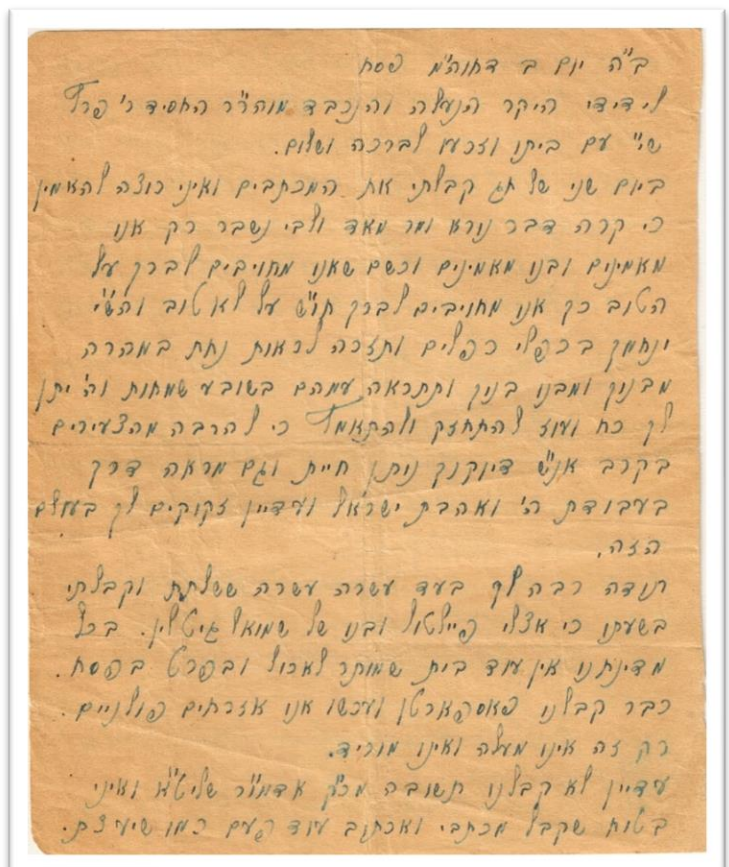 ב"ה יום ב דחוה"מ פסח
לידידי היקר הנעלה והנכבד מוהר"ר החסיד ר' פרץ
שי' עם ביתו וזרעו לברכה ושלום.
ביום שני של חג קבלתי את המכתבים ואיני רוצה להאמין
כי קרה דבר נורא ומר מאד ולבי נשבר רק אנו
מאמינים ובנו מאמינים וכשם שאנו מחויבים לברך על
הטוב כך אנו מחויבים לברך ח"ש על לא טוב והשי'
ינחמך בכפלי כפלים ותזכה לראות נחת במהרה
מבניך ומבנו בניך ותתראה עמהם בשובע שמחות וה' יתן
לך כח ועוז להתחזק כי להרבה מהצעירים
בקרב אנ"ש דיוקנך נותן חיית וגם מראה דרך
בעבודת ה' ואהבת ישראל ועדיין זקוקים לך בעולם
הזה.
תודה רבה לך בעד עשרה עשרה ששלחת וקבלתי
בשעתו כי אצלי ובנו של שמואל בכל
מדינתנו אין עוד בית שמותר לאכול ובפרט בפסח.
כבר קבלנו פאספארטן ועכשו אנו אזרחים פולניים.
רק זה אינו מעלה ואינו מוריד.
עדיין לא קבלנו תשובה מכ"ק אדמו"ר שליט"א ואיני
בטוח שקבל מכתבי ואכתוב עוד פעם כמו שיעצת.